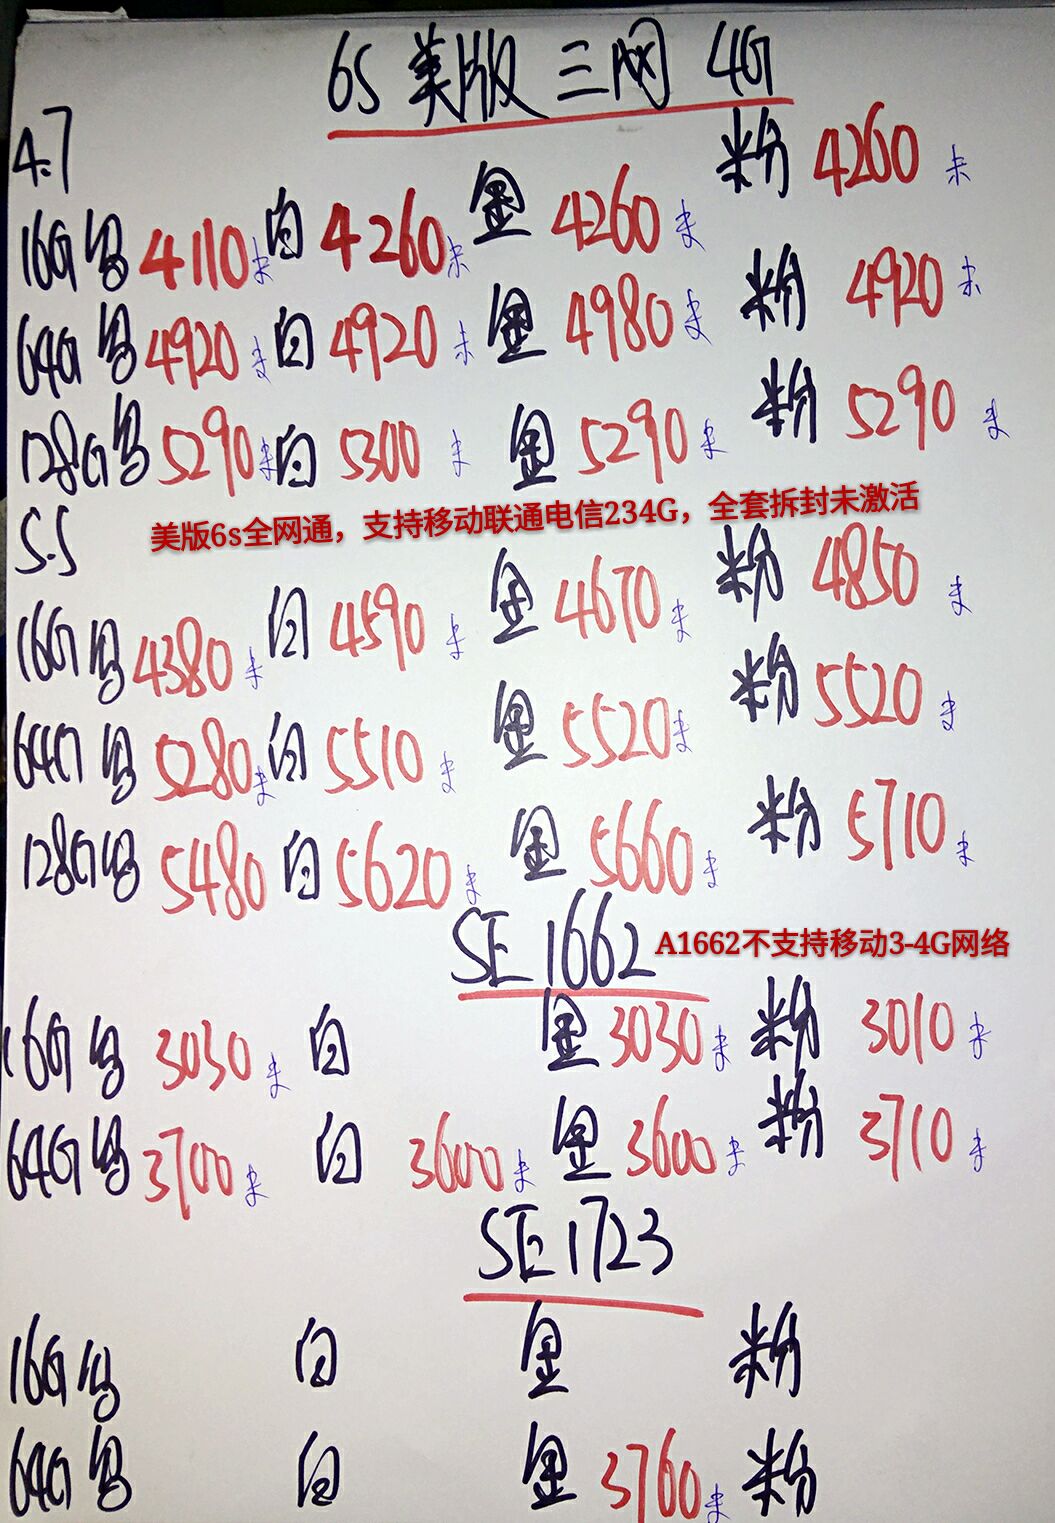 6S 美版 三网 4G
4.7
16G 黑 4110 未 白 4260 未 金 4260 未 粉 4260 未
64G 黑 4920 未 白 4920 未 金 4980 未 粉 4920 未
128G 黑 5290 未 白 5300 未 金 5290 未 粉 5290 未
美版6s全网通，支持移动联通电信234G，全套拆封未激活
5.5
16G 黑 4380 未 白 4590 未 金 4670 未 粉 4850 未
64G 黑 5280 未 白 5510 未 金 5520 未 粉 5520 未
128G 黑 5480 白 5620 未 金 5660 未 粉 5710 未
SE 1662 A1662不支持移动3-4G网络
16G 黑 3030 未 白 金 3030 未 粉 3010 未
64G 黑 3700 未 白 3600 未 金 3600 未 粉 3710 未
SE 1723
16G 黑 白 金 粉
64G 黑 白 金 3760 未 粉